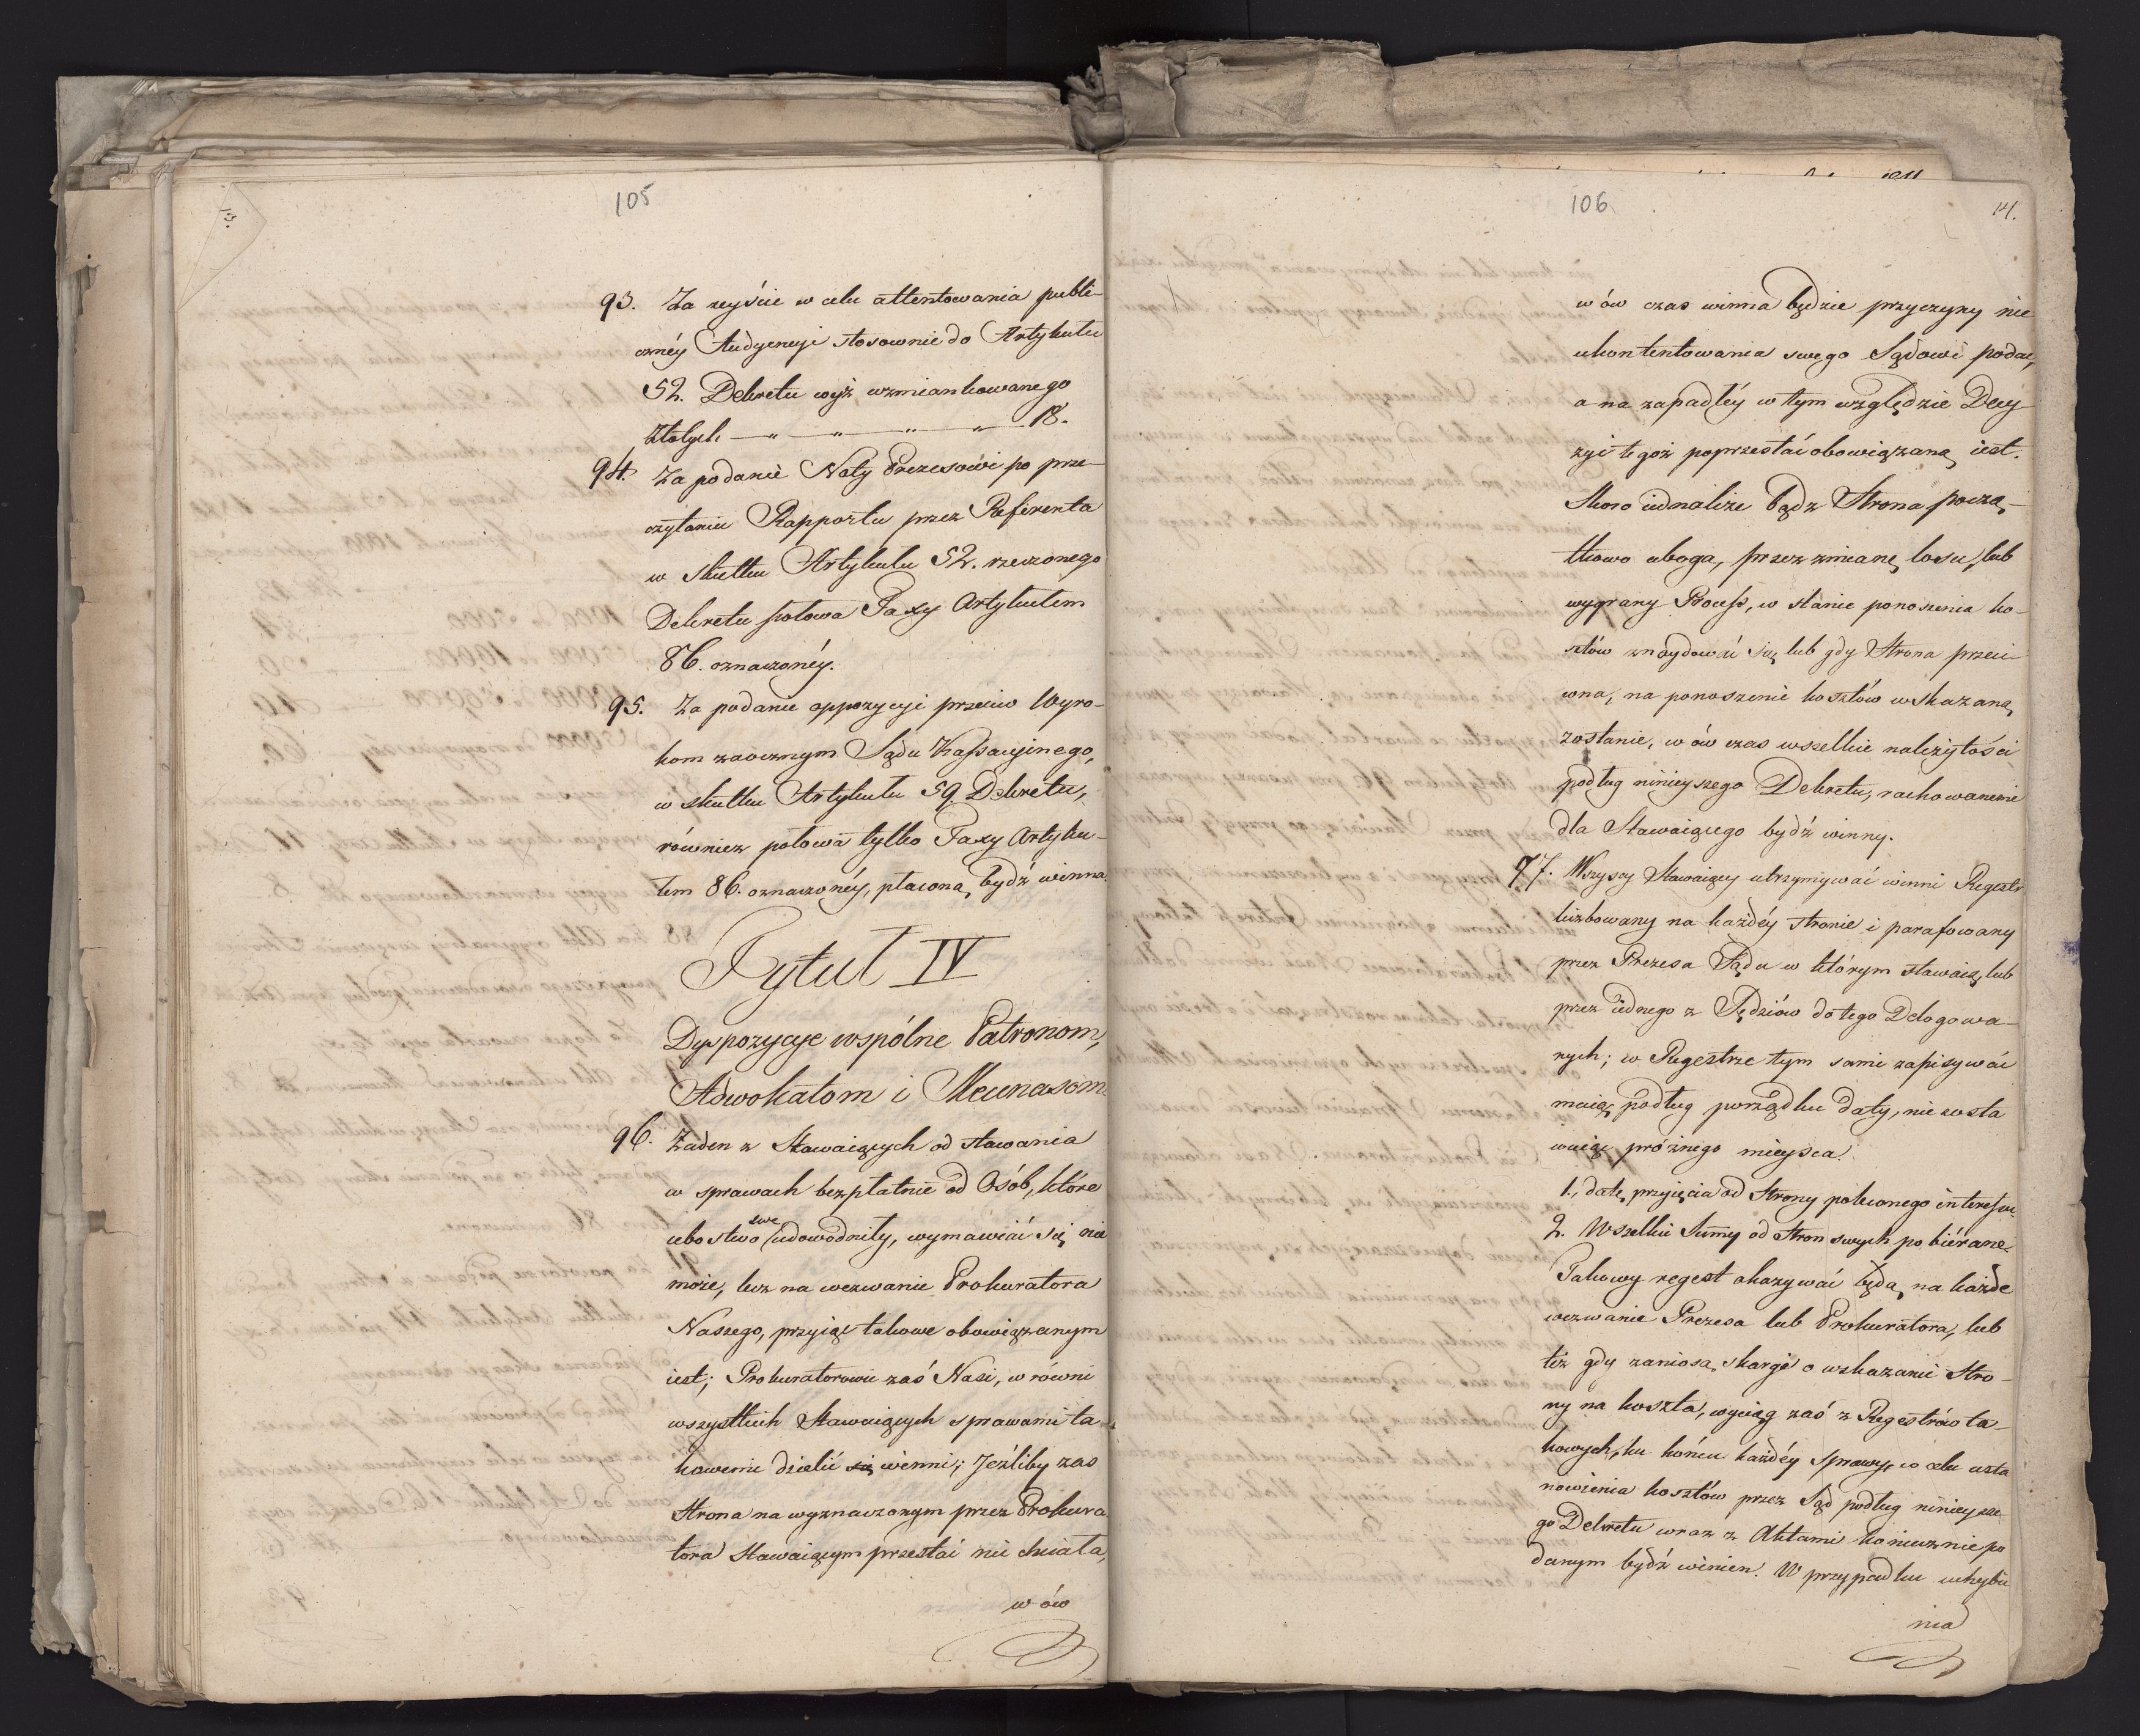 105
93. Za zeyście w celu attentowania publi-
cznéy Audyencyi stosownie do Artykułu
52. Dekretu wyż wzmiankowanego
złotych — " — " — " — " — 18.
94. Za podanie Noty Prezesowi po prze-
czytaniu Rapportu przez Referenta
w skutku Artykułu 52. rzeczonego
Dekretu połowa Taxy Artykułem
86. oznaczonéy.
95. Za podanie oppozycyi przeciw Wyro-
kom zaocznym Sądu Kassacyinego,
w skutku Artykułu 59. Dekretu,
również połowa tylko Taxy Artyku-
łem 86. oznaczonéy, płaconą bydź winna.
Tytuł IV
Dyspozycye wspólne Patronom,
Adwokatom i Mecenasom.
96. Żaden z Stawaiących od stawania
w sprawach bezpłatnie od Osób, które
ubostwo swe udowodniły, wymawiać się nie
może, lecz na wezwanie Prokuratora
Naszego, przyiąć takowe obowiązanym
iest; Prokuratorowie zaś Nasi, w równi
wszystkich Stawaiących sprawami ta-
kowemi dzielić się winni; Jeźliby zas
Strona na wyznaczonym przez Prokura
tora Stawaiącym przestać nie chciała,
w ów
106
14.
w ów czas winna będzie przyczyny nie
ukontentowania swego Sądowi podać,
a na zapadłéy w tym względzie Decy
zyi tegoż poprzestać obowiązaną iest.
Skoro iednakże bądz Strona począ-
tkowo uboga, przez zmianę losu, lub
wygrany Process, w stanie ponoszenia ko-
sztów znaydować się lub gdy Strona przeci-
wna, na ponoszenie kosztów wskazaną
zostanie, w ów czas wszelkie należytości
podług ninieyszego Dekretu, rachowanemi
dla Stawaiącego bydź winny.
97. Wszyscy Stawaiący utrzymywać winni Regestr
liczbowany na każdéy stronie i parafowany
przez Prezesa Sądu w którym stawaią, lub
przez iednego z Sędziów do tego Delegowa-
nych; w Regestrze tym sami zapisywać
maią podług porządku daty, nie zosta
wuiąc próżnego mieysca.
1., datę przyięcia od Strony poleconego interessu.
2. Wszelkie Summy od Stron swych pobiérane.
Takowy regest okazywać będą na każde
wezwanie Prezesa lub Prokuratora, lub
téż gdy zaniosą skargę o wskazanie Stro-
ny na koszta, wyciąg zaś z Regestrów ta-
kowych, ku końcu każdéy sprawy, w celu usta
nowienia kosztów przez Sąd podług ninieysze
go Dekretu wraz z Aktami koniecznie po
danym bydź winien. W przypadku uchybie
nia